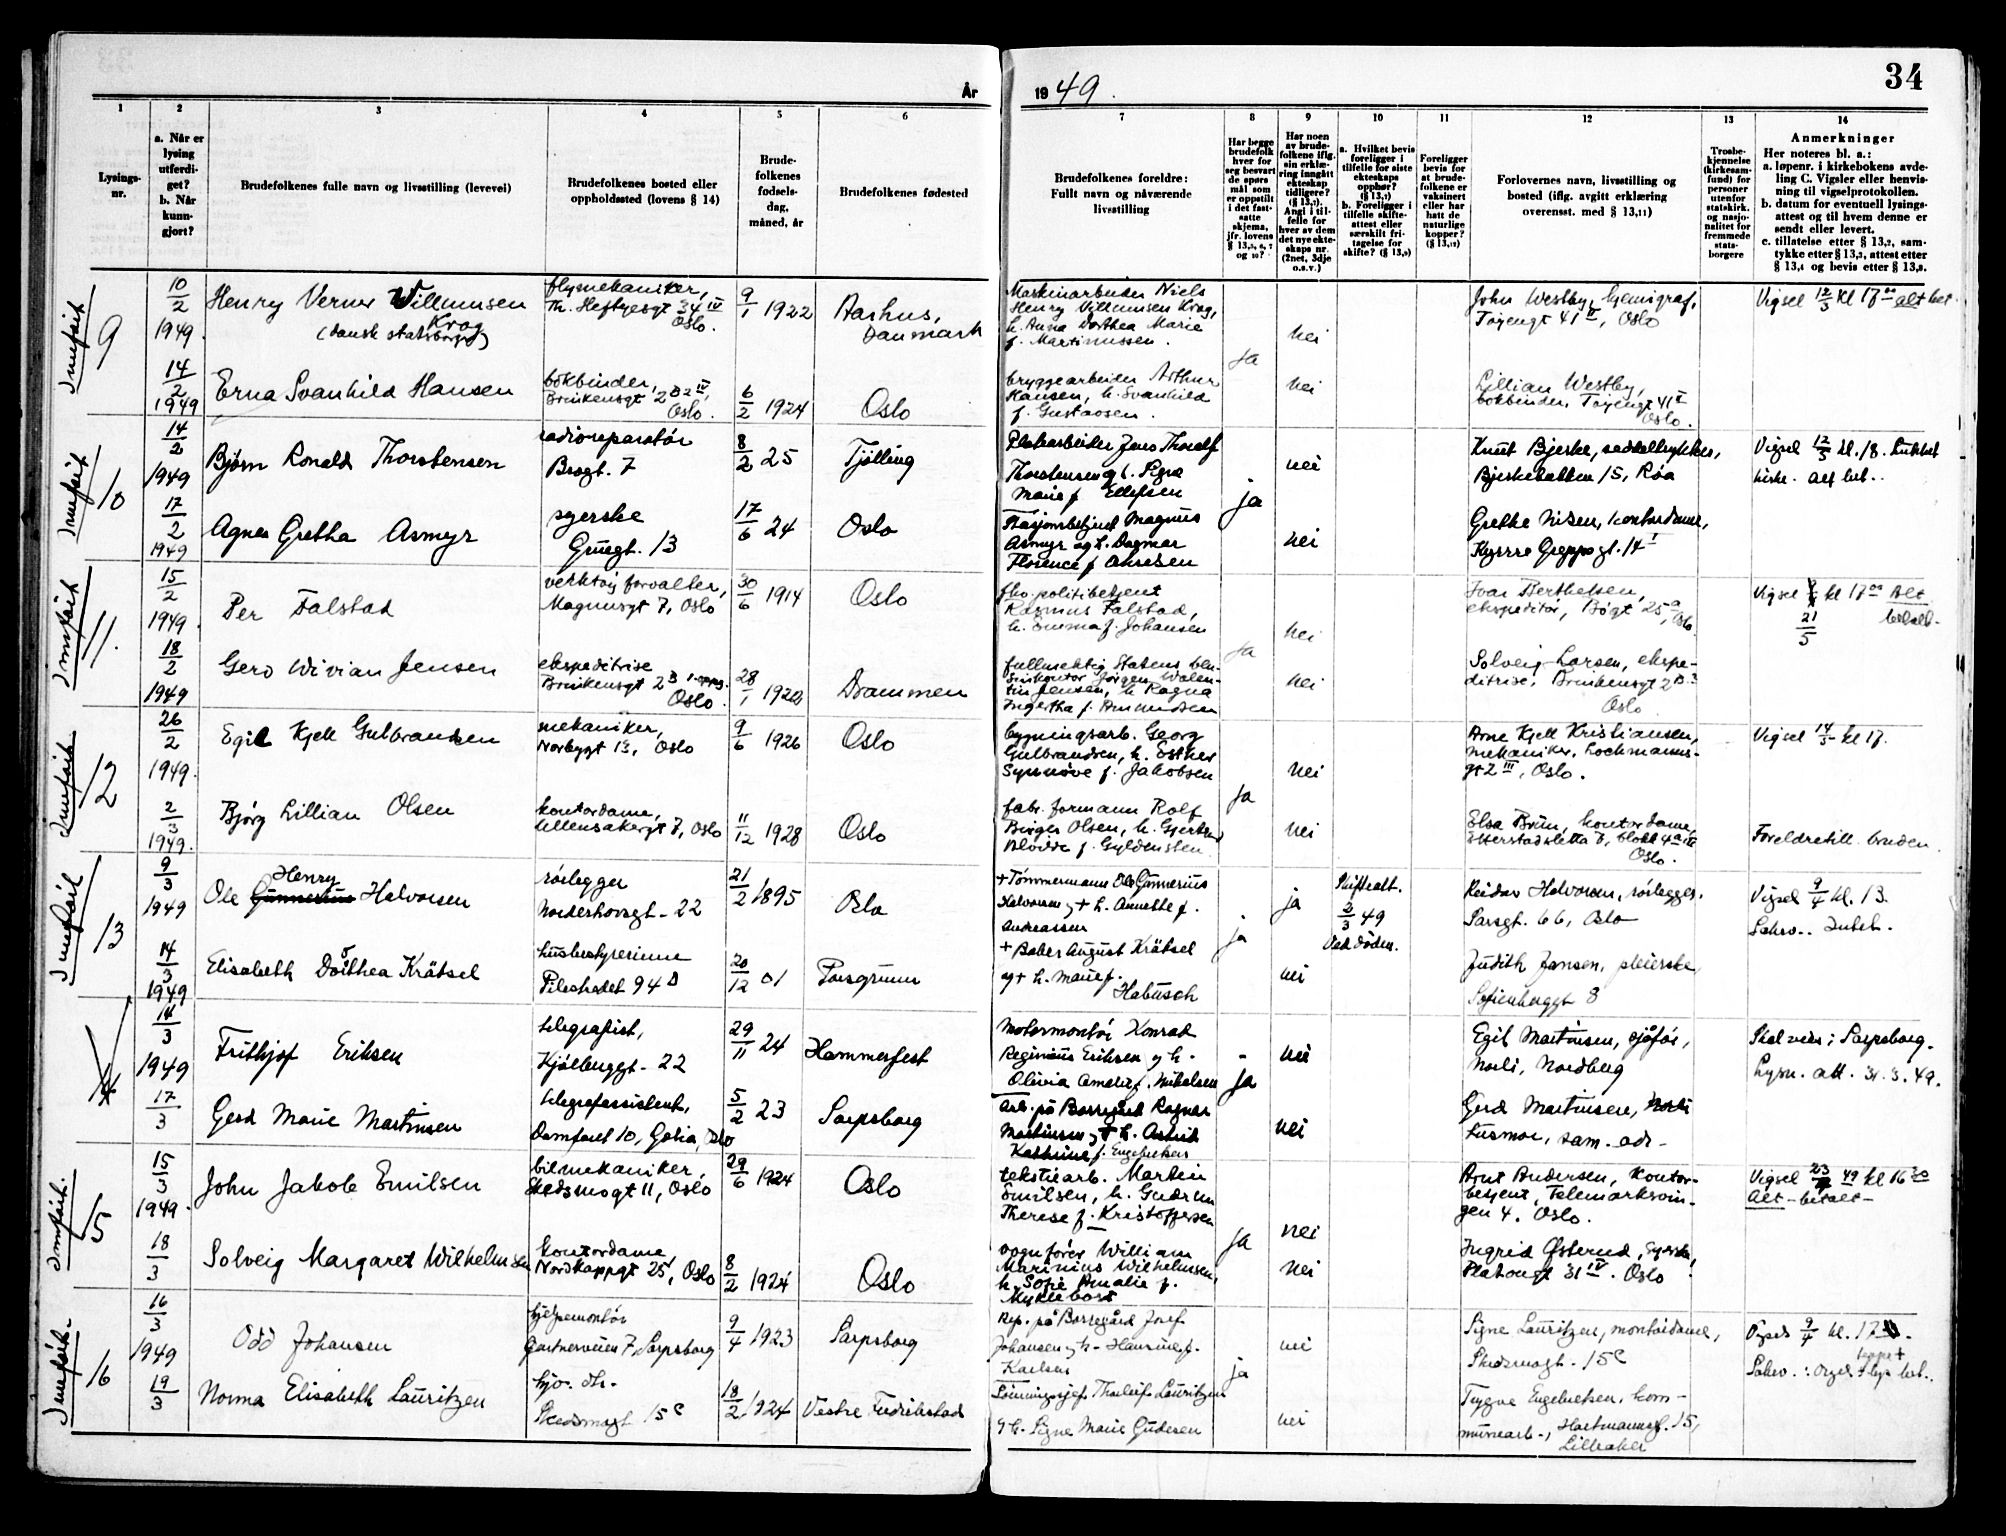 34
År 1949.
1
2
3
4
5
6
7
8
9
10
11
12
13
14
Lysings-
nr.
a. Når er
lysing
utferdi-
get?
b. Når
kunn-
gjort?
Brudefolkenes fulle navn og livsstilling (levevei)
Brudefolkenes bosted eller
oppholdssted (lovens § 14)
Brude-
folkenes
fødsels-
dag,
måned, år
Brudefolkenes fødested
Brudefolkenes foreldre:
Fullt navn og nåværende
livsstilling
Har begge
brudefolk
hver for
seg besvart
de spørs
mål som
er oppstilt
i det fast-
satte
skjema,
jfr. lovens
Har noen
av brude-
folkene iflg.
sin erklæ-
ring inngått
ekteskap
tidligere?
Angi i til-
felle for
hver av dem
det nye ekte-
skaps nr.
(2net, 3dje
o.s.v.)
a. Hvilket bevis
foreligger i
tilfelle for siste
ekteskaps
opphør?
b. Foreligger i
tilfelle skifte-
attest eller
særskilt fri-
tagelse for
skifte?
Foreligger
bevis for
at brude-
folkene er
vaksinert
eller har
hatt de
naturlige
kopper?
Forlovernes navn, livsstilling og
bosted (iflg. avgitt erklæring
overensst. med § 13,11)
Trosbe-
kjennelse
(kirkesam-
fund) for
personer
utenfor
statskirk.
og nasjo-
nalitet for
fremmede
stats-
borgere
Anmerkninger
Her noteres bl. a.:
a. løpenr. i kirkebokens avde-
ling C. Vigsler eller henvis-
ning til vigselprotokollen.
b. datum for eventuell lysings-
attest og til hvem denne er
sendt eller levert.
c. tillatelse etter § 13,2, sam-
tykke etter § 13,3, attest etter
§ 13,4 og bevis etter § 13,8.
Innført
9
10/2
1949.
Henry Verner Willumsen
Krog
(dansk statsborger)
flymekaniker,
Th. Heftyesgt 34 IV
Oslo.
9/1 1922
Aarhus,
Danmark
Maskinarbeider Niels
Henry Villumsen Krog,
h. Anna Dorthea Marie
f. Martinussen.
ja
nei
John Westby, kjemigraf,
Tøyengt 41 II, Oslo
Vigsel 12/3 kl 17 00 alt bet.
14/2
1949
Erna Svanhild Hansen
bokbinder,
Brinkensgt 2 B 2 IV,
Oslo.
6/2 1924
Oslo
bryggearbeider Arthur
Hansen, h. Svanhild
f. Gustavsen.
nei
Lillian Westby,
bokbinder, Tøyengt 41 II
Oslo.
Innført
10
14/2
1949
Bjørn Ronald Thorstensen
radioreparatør
Brogt. 7
8/2 25
Tjølling
Platearbeider Jens Thorolf
Thorstensen og h. Signe
Marie f. Ellefsen
ja
nei
Knut Bjerke, seddeltrykker,
Bjerkebakken 15, Røa
Vigsel 12/3 kl. 18. Lukket
kirke. alt bet..
17/2
1949
Agnes Gretha Asmyr
syerske
Gruegt. 13
17/6 24
Oslo
Stasjonsbetjent Magnus
Asmyr og h. Dagmar
Florence f. Andresen
nei
Grethe Nilsen, kontordame,
Kyrre Greppsgt. 14 I
Innført
11.
15/2
1949.
Per Falstad
verktøy forvalter,
Magnusgt 7, Oslo
30/6 1914
Oslo
fhv. politibetjent
Rasmus Falstad,
h. Emma f. Johansen
ja
nei
Ivar Berthelsen,
ekspeditør, Bøgt 25 a, Oslo.
Vigsel kl 17 00 Alt
betalt.
21/5
18/2
1949
Gerd Wivian Jensen
ekspeditrise
Brinkensgt 2 B 1 opg.
Oslo.
28/1 1920
Drammen
fullmektig Statens
Jørgen Walen-
tin Jensen, h. Ragna
Ingertha f. Amundsen
nei
Solveig Larsen, ekspe-
ditrise, Brinkensgt 2
Oslo.
Innført
12
26/2
1949.
Egil Kjell Gulbrandsen
mekaniker,
Norbygt 13, Oslo
9/6 1926
Oslo
bygningsarb. Georg
Gulbrandsen, h. Esther
Synnøve f. Jakobsen
ja
nei
Arne Kjell Kristiansen,
mekaniker, Lochmanns-
gt 2 III, Oslo.
Vigsel 14/5 kl 17.
2/3
1949.
Bjørg Lillian Olsen
kontordame,
Ullensakergt 7, Oslo
11/12 1928
Oslo
fabr. formann Rolf
Birger Olsen, h. Gjertrud
Blødde f. Gyldensten
nei
Elsa Brun, kontordame,
Etterstadsletta 3, blokk 4 a III
Oslo.
Foreldretill. bruden
Innført
13
9/3
1949
Henry
Ole Gunnerius Halvorsen
rørlegger
Norderhovsgt. 22
21/2 1895
Oslo
+ Tømmermann Ole Gunnerius
Halvorsen og + h. Annette f.
Andreassen
ja
ja
Skifteatt.
2/3 49
Ved døden.
Reidar Halvorsen, rørlegger.
Sarsgt. 66, Oslo
Vigsel 9/4 kl. 13.
Sakr..
14/3
1949
Elisabeth Dorthea Krätsel
husbestyrerinne
Pilestredet 94 D
20/12 01
Porsgrunn
+ Baker August Krätsel
og + h. Marie f.
Habusch
nei
Judith Jansen, pleierske,
Sofienberggt 8
14
14/3
1949
Frithjof Eriksen
telegrafist,
Kjølberggt. 22
29/11 24
Hammerfest
Motormontør Konrad
Reginius Eriksen og h.
Olivia Amalie f. Nikolaisen
ja
nei
Egil Martinsen, sjåfør,
Norli, Nordberg
Skal vies i Sarpsborg.
Lysn. att. 31.3.49.
17/3
Gerd Marie Martinsen
telegrafassistent,
Damfaret 10, Gotia, Oslo
5/2 23
Sarpsborg
Arb. på Borregård Ragnar
Martinsen og + h. Astrid
Kathrine f. Engebretsen
nei
Gerd Martinsen, Norli
husmor, sam. adr.
Innført.
15
15/3
1949.
John Jakob Emilsen
bilmekaniker,
Skedsmogt 11, Oslo
29/6 1924
Oslo
tekstilarb. Martin
Emilsen, h. Gudrun
Therese f. Kristoffersen
ja
nei
Arnt Andersen, kontor-
betjent, Telemarksvin-
gen 4. Oslo.
Vigsel 23/4 49 kl 16 30
Alt betalt
18/3
Solveig Margaret Wilhelmsen
kontordame
Nordkappgt 25, Oslo
8/2 1924
Oslo
vognfører William
Marinius Wilhelmsen,
h. Sofie Amalie f.
Myklebost
nei
Ingrid Østerud, syerske,
Platougt 31 IV. Oslo
Innført.
16
16/3
1949
Odd Johansen
hjelpemontør
Gartnerveien 7, Sarpsborg
9/4 1923
Sarpsborg
Rep. på Borregård Josef
Johansen og h. Hansine f.
Karlsen
ja
nei
Signe Lauritzen, montørdame,
Skedsmogt. 15 C
Vigsel 9/4 kl. 17
teppe +
Sakr. : orgel + lys bet..
19/3
Norma Elisabeth Lauritzen
hjv. dtr.
Skedsmogt 15 C
18/2 1924
Vestre Fredrikstad
Thorleif Lauritzen
og h. Signe Marie Gudesen
nei
Trygve Engebretsen, kom-
munearb., Hartmannsgt. 15,
Lilleaker